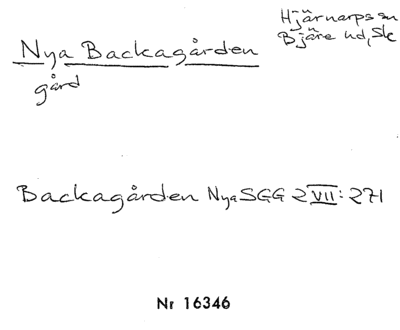 Nya Backagården
gård
Hjärnarps sn
Bjäre hd, Sk
Backagården Nya SGG 2 VII: 271
Nr 16346